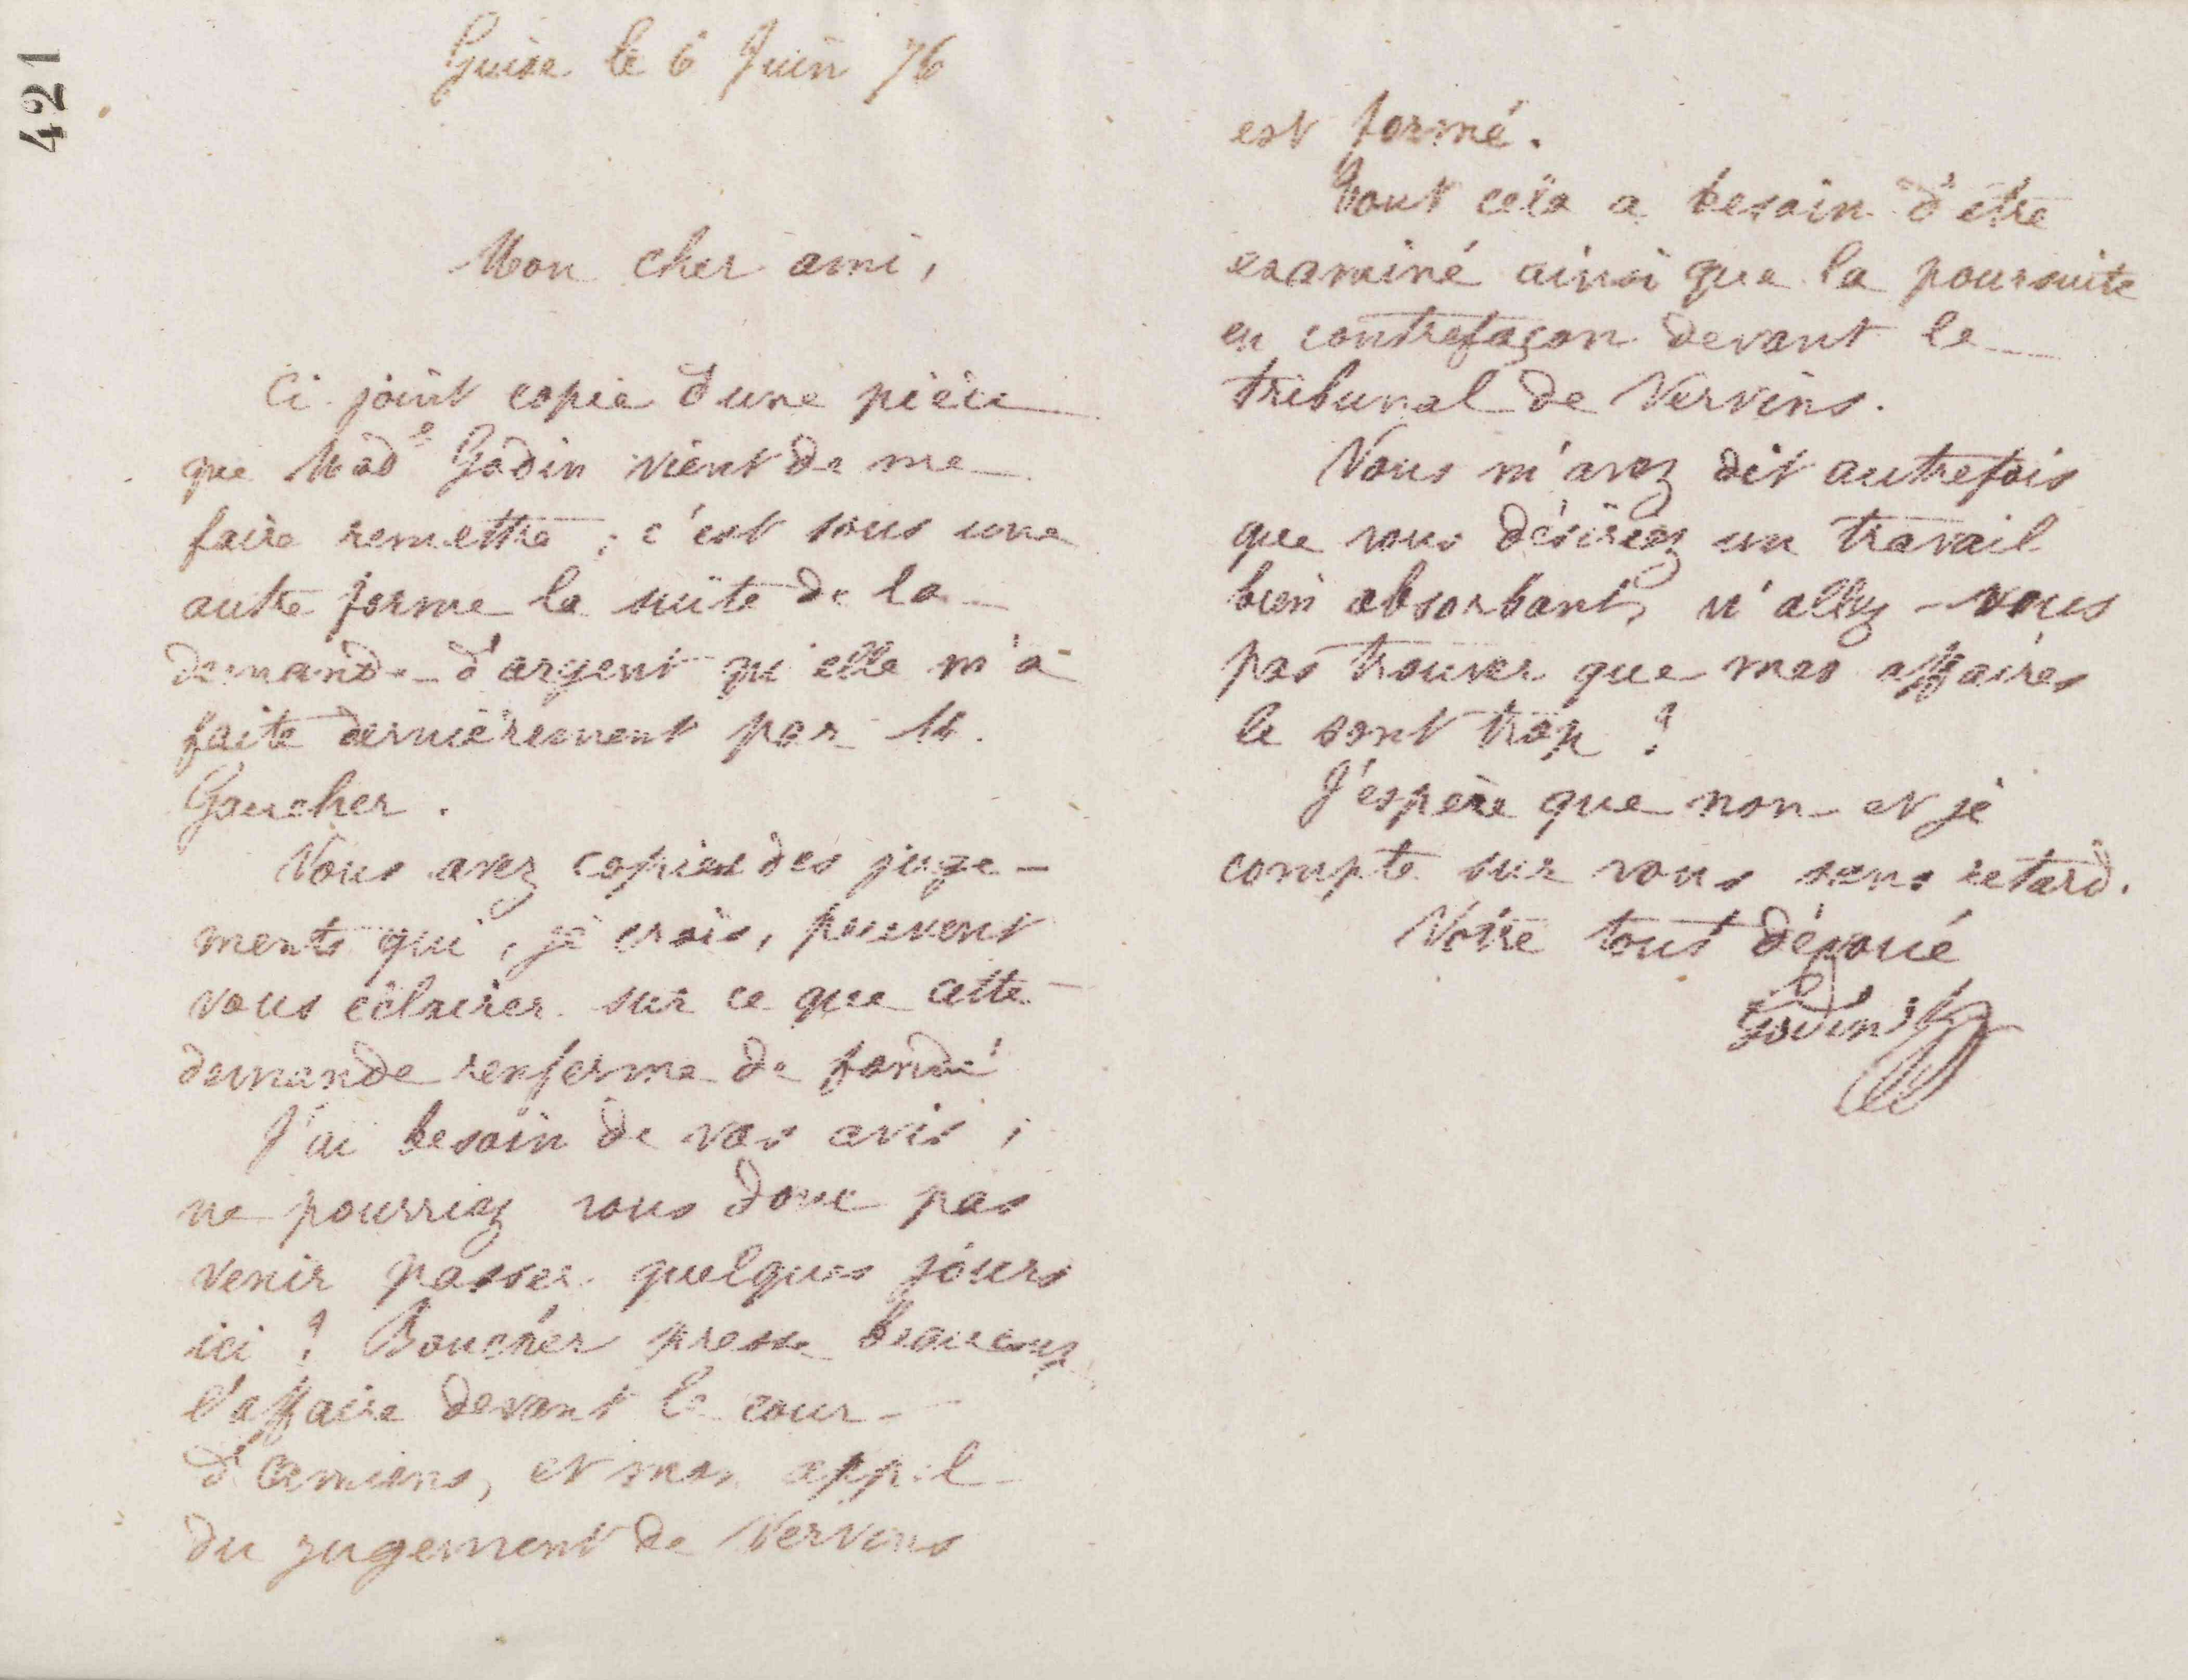 421
Guise le 6 Juin 76
Mon cher ami,
Ci joint copie d'une pièce
que Mad^e Godin vient de me
faire remettre ; c'est sous une
autre forme la suite de la
demande d'argent qu'elle m'a
faite dernièrement par M.
Gaucher.
Vous avez copies des juge-
ments qui, je crois, peuvent
vous éclairer sur ce que cette
demande renferme de fondé
J'ai besoin de vos avis ;
ne pourriez vous donc pas
venir passer quelques jours
ici ? Boucher presse beaucoup
l'affaire devant la cour
d'Amiens, et mon appel
du jugement de Vervins
est formé.
Tout cela a besoin d'être
examiné ainsi que la poursuite
en contrefaçon devant le
tribunal de Vervins.
Vous m'avez dit autrefois
que vous désiriez un travail
bien absorbant, n'allez-vous
pas trouver que mes affaires
le sont trop ?
J'espère que non et je
compte sur vous sans retard.
Votre tout dévoué
Godin